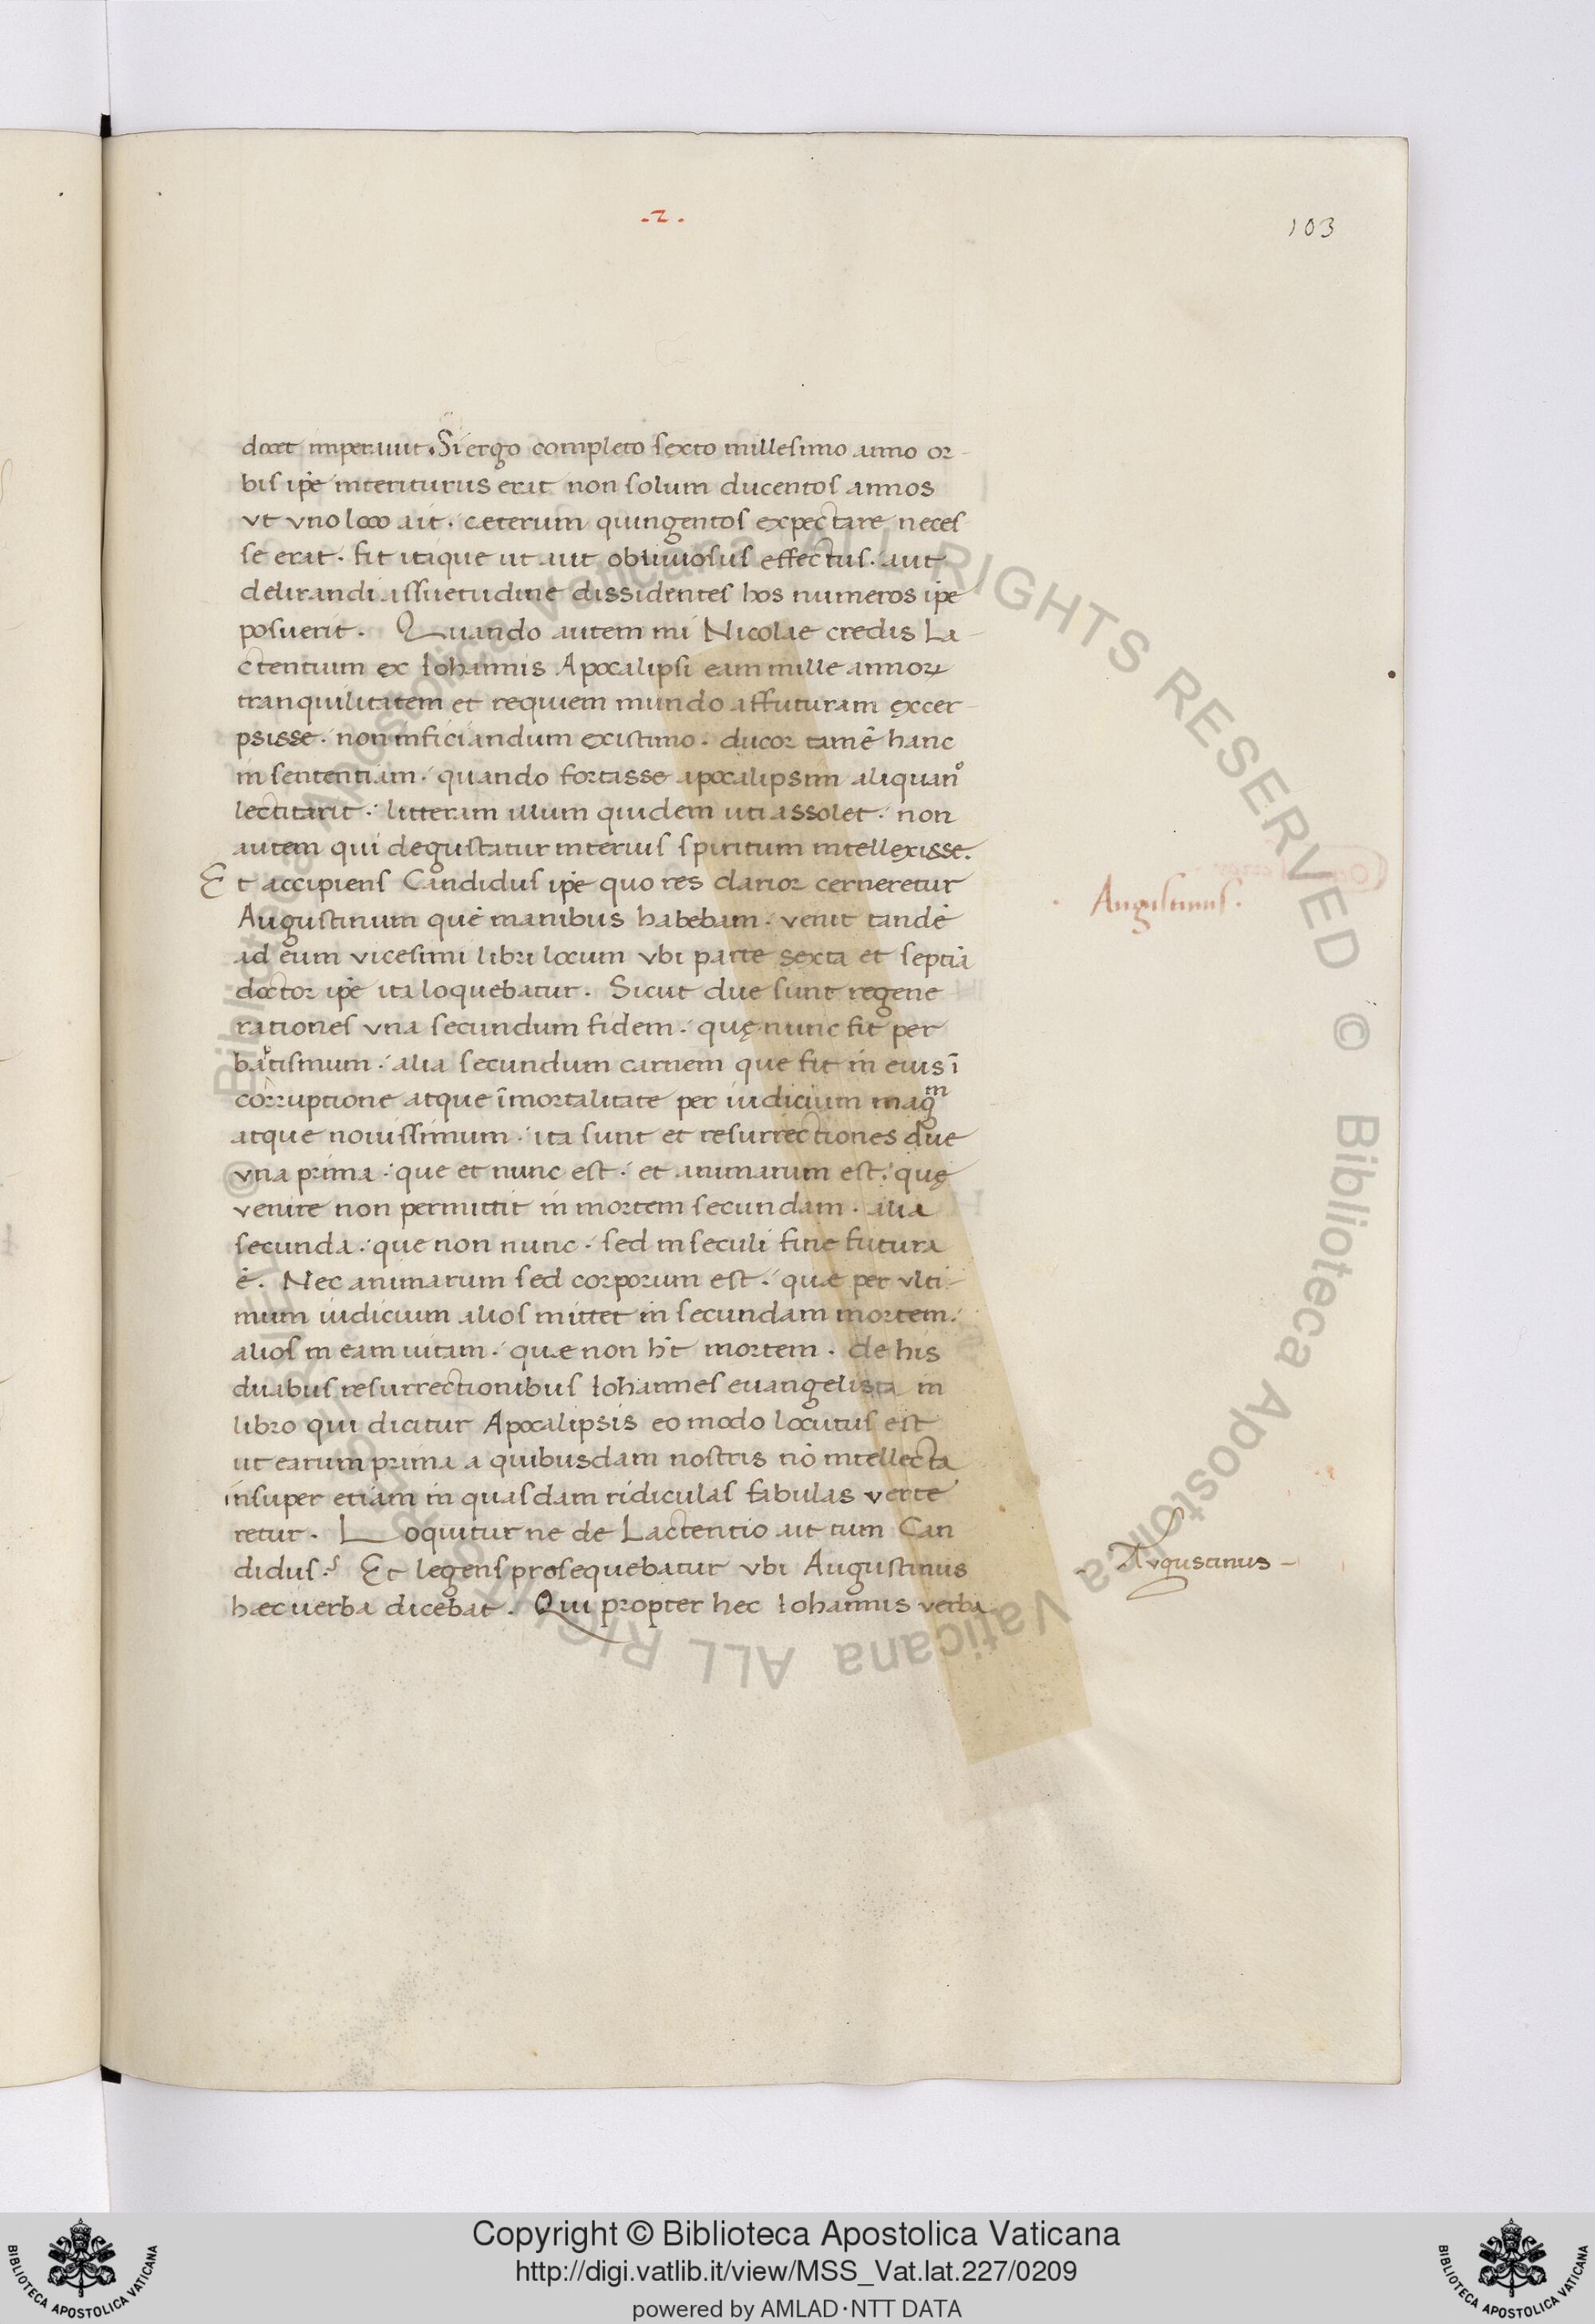 .2.
103
docet imperauit. Si ergo completo sexto millesimo anno or-
bis ip̄e interiturus erit non solum ducentos annos
vt vno loco ait. cæterum quingentos expectare neces-
se erat. fit itaque ut aut obliuiosus effectus. aut
delirandi assuetudine dissidentes hos numeros ip̄e
posuerit. Quando autem mi Nicolae credis La-
ctentium ex Iohannis Apocalipsi eam mille annoꝝ
tranquilitatem et requiem mundo affuturam excer-
psisse. non inficiandum existimo. ducor tamē hanc
in sententiam. quando fortasse apocalipsim aliquanᵒ
lectitarit. litteram illum quidem uti assolet. non
autem qui degustatur interius spiritum intellexisse.
Et accipiens Candidus ip̄e quo res clarior cerneretur
Augustinum quē manibus habebam. venit tandē
ad eum vicesimi libri locum vbi parte sexta et septīa
doctor ip̄e ita loquebatur. Sicut due sunt regene-
rationes vna secundum fidem. quę nunc fit per
batismum. alia secundum carnem que fit in eius ī
corruptione atque īmortalitate per iudicium magᵐ
atque nouissimum. ita sunt et resurrectiones due
vna prima. que et nunc est. et animarum est. quę
venire non permittit in mortem secundam. alia
secunda. que non nunc. sed in seculi fine futura
ē. Nec animarum sed corporum est. quæ per vlti-
mum iudicium alios mittet in secundam mortem.
alios in eam uitam. quæ non h̄t mortem. de his
duabus resurrectionibus Iohannes euangelista in
libro qui dicitur Apocalipsis eo modo locutus est
ut earum prima a quibusdam nostris nō intellecta
insuper etiam in quasdam ridiculas fabulas verte
retur. Loquitur ne de Lactentio ait tum Can
didus? Et legens prosequebatur vbi Augustinus
hæc uerba dicebat. Qui propter hec Iohannis verba
Augustinus.
Augustinus -
© Biblioteca Apostolica Vaticana ALL RIGHTS RESERVED © Biblioteca Apostolica Vaticana ALL RIGHTS RESERVED
Copyright © Biblioteca Apostolica Vaticana
http://digi.vatlib.it/view/MSS_Vat.lat.227/0209
powered by AMLAD·NTT DATA
BIBLIOTECA APOSTOLICA VATICANA
BIBLIOTECA APOSTOLICA VATICANA